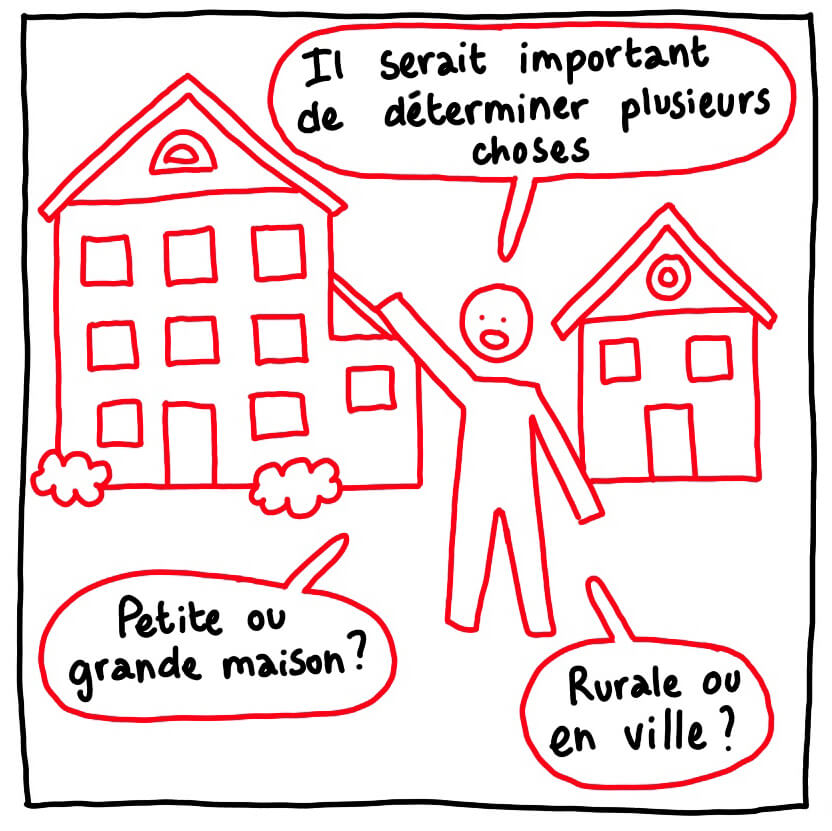 Il serait important
de déterminer plusieurs
choses
Petite ou
grande maison?
Rurale ou
en ville?